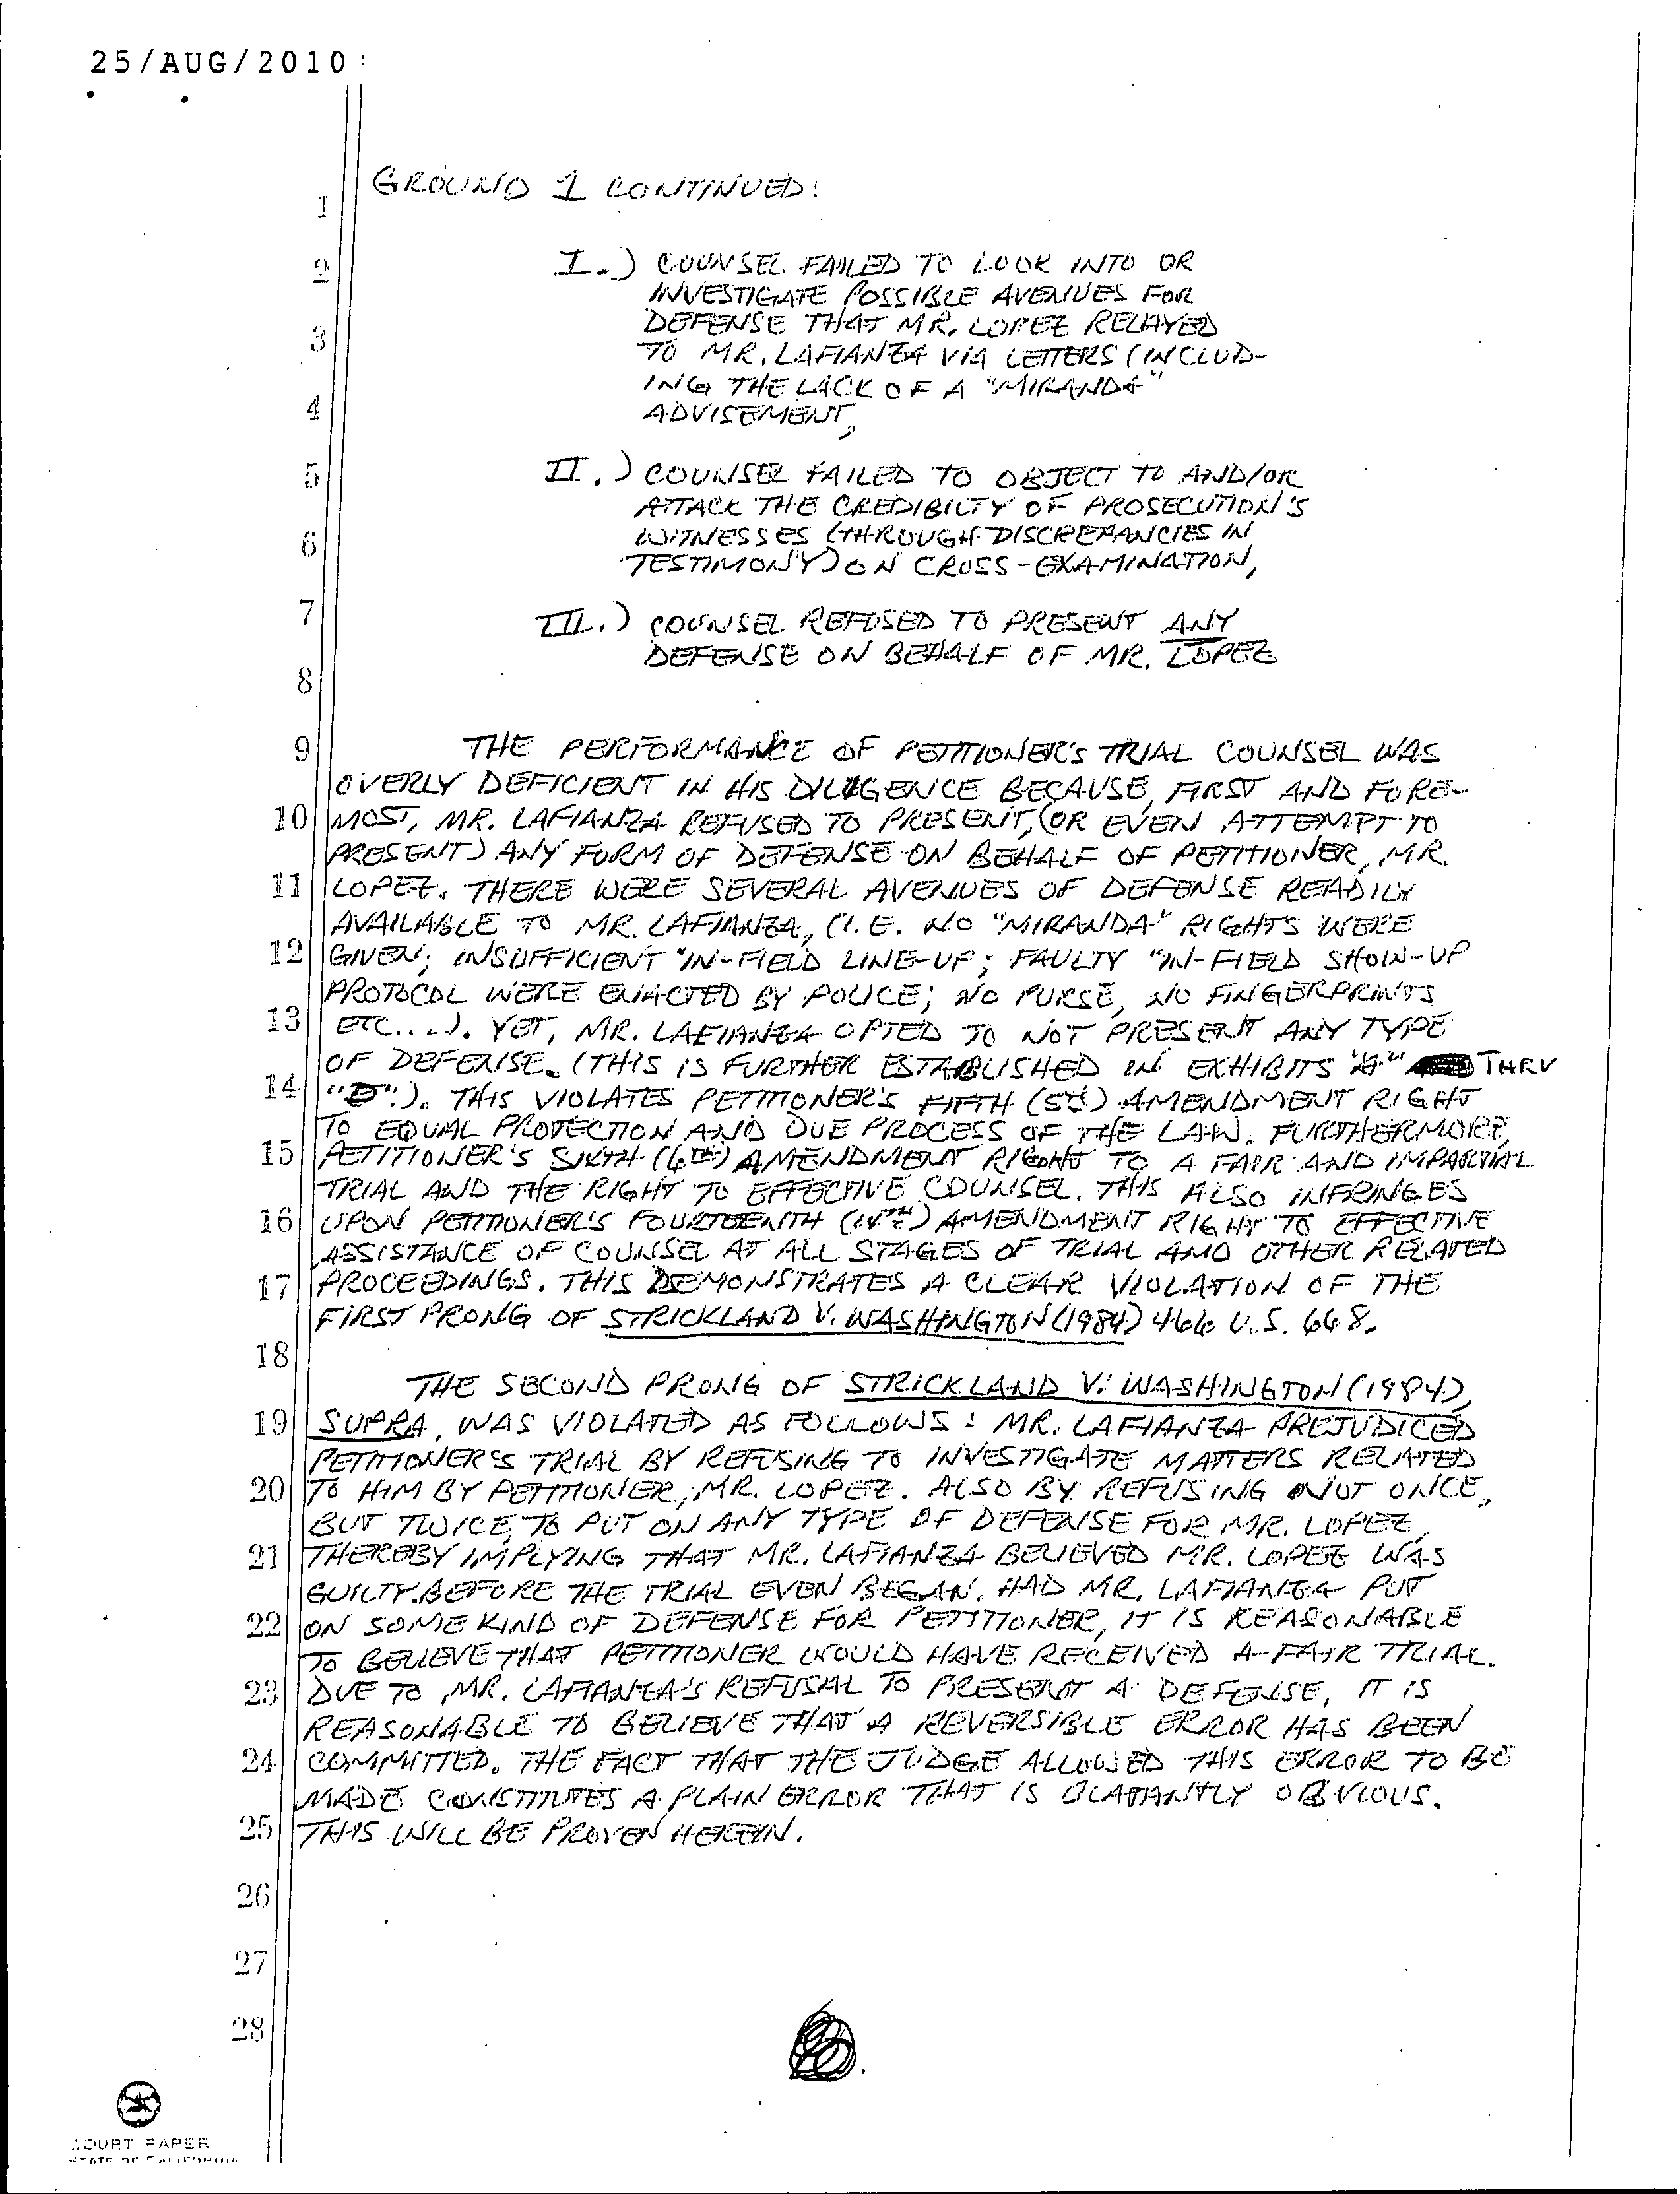 25/AUG/2010
GROUND 1 CONTINUED:
1
2
3
4
5
6
7
8
9
10
11
12
13
14
15
16
17
18
19
20
21
22
23
24
25
26
27
28
I.) COUNSEL FAILED TO LOOK INTO OR
INVESTIGATE POSSIBLE AVENUES FOR
DEFENSE THAT MR. LOPEZ RELAYED
TO MR. LAFIANZA VIA LETTERS (INCLUD-
ING THE LACK OF A "MIRANDA"
ADVISEMENT,
II.) COUNSEL FAILED TO OBJECT TO AND/OR
ATTACK THE CREDIBILTY OF PROSECUTION'S
WITNESSES (THROUGH DISCREPANCIES IN
TESTIMONY) ON CROSS-EXAMINATION,
III.) COUNSEL REFUSED TO PRESENT ANY
DEFENSE ON BEHALF OF MR. LOPEZ
THE PERFORMANCE OF PETITIONER'S TRIAL COUNSEL WAS
OVERLY DEFICIENT IN HIS DILIGENCE BECAUSE, FIRST AND FORE-
MOST, MR. LAFIANZA REFUSED TO PRESENT, (OR EVEN ATTEMPT TO
PRESENT) ANY FORM OF DEFENSE ON BEHALF OF PETITIONER, MR.
LOPEZ. THERE WERE SEVERAL AVENUES OF DEFENSE READILY
AVAILABLE TO MR. LAFIANZA, (I.E. NO "MIRANDA" RIGHTS WERE
GIVEN; INSUFFICIENT "IN-FIELD LINE-UP; FAULTY "IN-FIELD SHOW-UP
PROTOCOL WERE ENACTED BY POLICE; NO PURSE, NO FINGERPRINTS
ETC....). YET, MR. LAFIANZA OPTED TO NOT PRESENT ANY TYPE
OF DEFENSE. (THIS IS FURTHER ESTABLISHED IN EXHIBITS "A" THRU
"D".). THIS VIOLATES PETITIONER'S FIFTH (5TH) AMENDMENT RIGHT
TO EQUAL PROTECTION AND DUE PROCESS OF THE LAW. FURTHERMORE,
PETITIONER'S SIXTH (6TH) AMENDMENT RIGHT TO A FAIR AND IMPARTIAL
TRIAL AND THE RIGHT TO EFFECTIVE COUNSEL. THIS ALSO INFRINGES
UPON PETITIONER'S FOURTEENTH (14TH) AMENDMENT RIGHT TO EFFECTIVE
ASSISTANCE OF COUNSEL AT ALL STAGES OF TRIAL AND OTHER RELATED
PROCEEDINGS. THIS DEMONSTRATES A CLEAR VIOLATION OF THE
FIRST PRONG OF STRICKLAND V. WASHINGTON (1984) 466 U.S. 668.
THE SECOND PRONG OF STRICKLAND V. WASHINGTON (1984),
SUPRA, WAS VIOLATED AS FOLLOWS: MR. LAFIANZA PREJUDICED
PETITIONER'S TRIAL BY REFUSING TO INVESTIGATE MATTERS RELATED
TO HIM BY PETITIONER, MR. LOPEZ. ALSO BY REFUSING NOT ONCE,
BUT TWICE, TO PUT ON ANY TYPE OF DEFENSE FOR MR. LOPEZ,
THEREBY IMPLYING THAT MR. LAFIANZA BELIEVED MR. LOPEZ WAS
GUILTY BEFORE THE TRIAL EVEN BEGAN. HAD MR. LAFIANZA PUT
ON SOME KIND OF DEFENSE FOR PETITIONER, IT IS REASONABLE
TO BELIEVE THAT PETITIONER WOULD HAVE RECEIVED A FAIR TRIAL.
DUE TO MR. LAFIANZA'S REFUSAL TO PRESENT A DEFENSE, IT IS
REASONABLE TO BELIEVE THAT A REVERSIBLE ERROR HAS BEEN
COMMITTED. THE FACT THAT THE JUDGE ALLOWED THIS ERROR TO BE
MADE CONSTITUTES A PLAIN ERROR THAT IS BLATANTLY OBVIOUS.
THIS WILL BE PROVEN HEREIN.
COURT PAPER
STATE OF CALIFORNIA